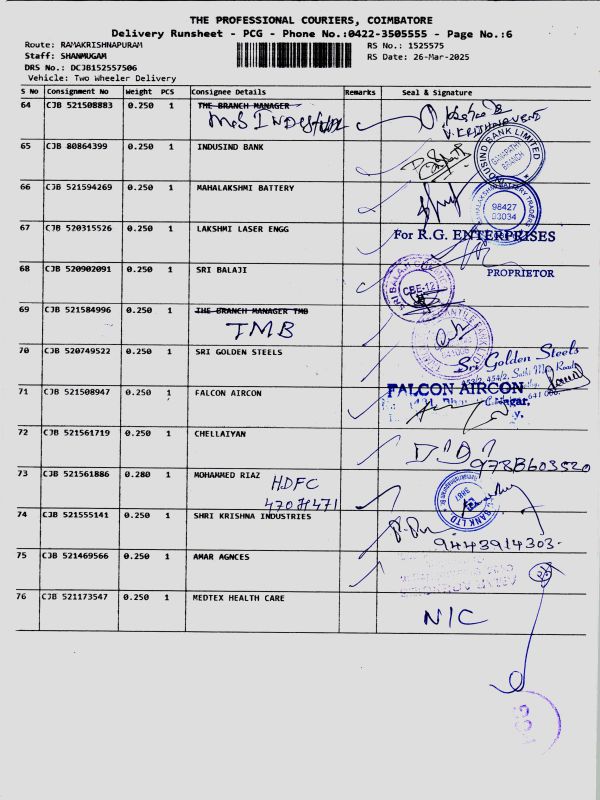 THE PROFESSIONAL COURIERS, COIMBATORE
Delivery Runsheet - PCG - Phone No.:0422-3505555 - Page No.:6
Route: RAMAKRISHNAPURAM RS No.: 1525575
Staff: SHANMUGAM RS Date: 26-Mar-2025
DRS No.: DCJB152557506
Vehicle: Two Wheeler Delivery
S No Consignment No Weight PCS Consignee Details Remarks Seal & Signature
64 CJB 521508883 0.250 1 THE BRANCH MANAGER
V. KRISHNAVENI
65 CJB 80864399 0.250 1 INDUSIND BANK
INDUSIND BANK LIMITED
GANAPATHY BRANCH
66 CJB 521594269 0.250 1 MAHALAKSHMI BATTERY
MAHALAKSHMI BATTERY TRADERS
98427
93034
67 CJB 520315526 0.250 1 LAKSHMI LASER ENGG
For R.G. ENTERPRISES
PROPRIETOR
68 CJB 520902091 0.250 1 SRI BALAJI
SRI BALAJI
CBE-12
69 CJB 521584996 0.250 1 THE BRANCH MANAGER TMB
TMB
70 CJB 520749522 0.250 1 SRI GOLDEN STEELS
Sri Golden Steels
453/2, 454/2, Sathi Main Road
641 006.
71 CJB 521508947 0.250 1 FALCON AIRCON
FALCON AIRCON
72 CJB 521561719 0.250 1 CHELLAIYAN
73 CJB 521561886 0.280 1 MOHAMMED RIAZ
HDFC
BANK LTD
74 CJB 521555141 0.250 1 SHRI KRISHNA INDUSTRIES
9443914303.
75 CJB 521469566 0.250 1 AMAR AGNCES
76 CJB 521173547 0.250 1 MEDTEX HEALTH CARE
N/C